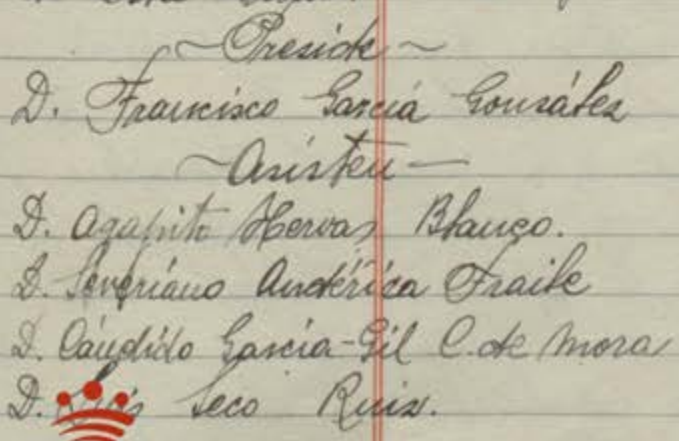 ~Preside~
D. Francisco García González
~Asisten—
D. Agapito Hervas Blanco.
D. Severiano Andérica Fraile
D. Cándido García-Gil C. de Mora
D. Luis Seco Ruiz.